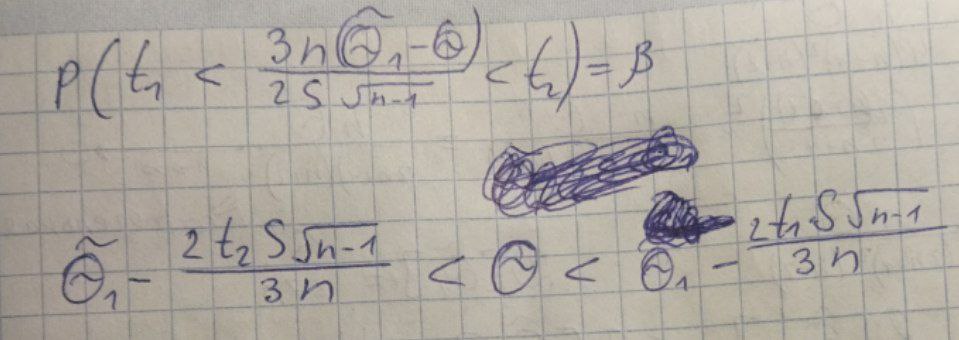 P(t₁ < 3n(Θ̃₁-Θ)/(2S√(n-1)) < t₂) = β
Θ̃₁ - 2t₂S√(n-1)/(3n) < Θ < Θ̃₁ - 2t₁S√(n-1)/(3n)